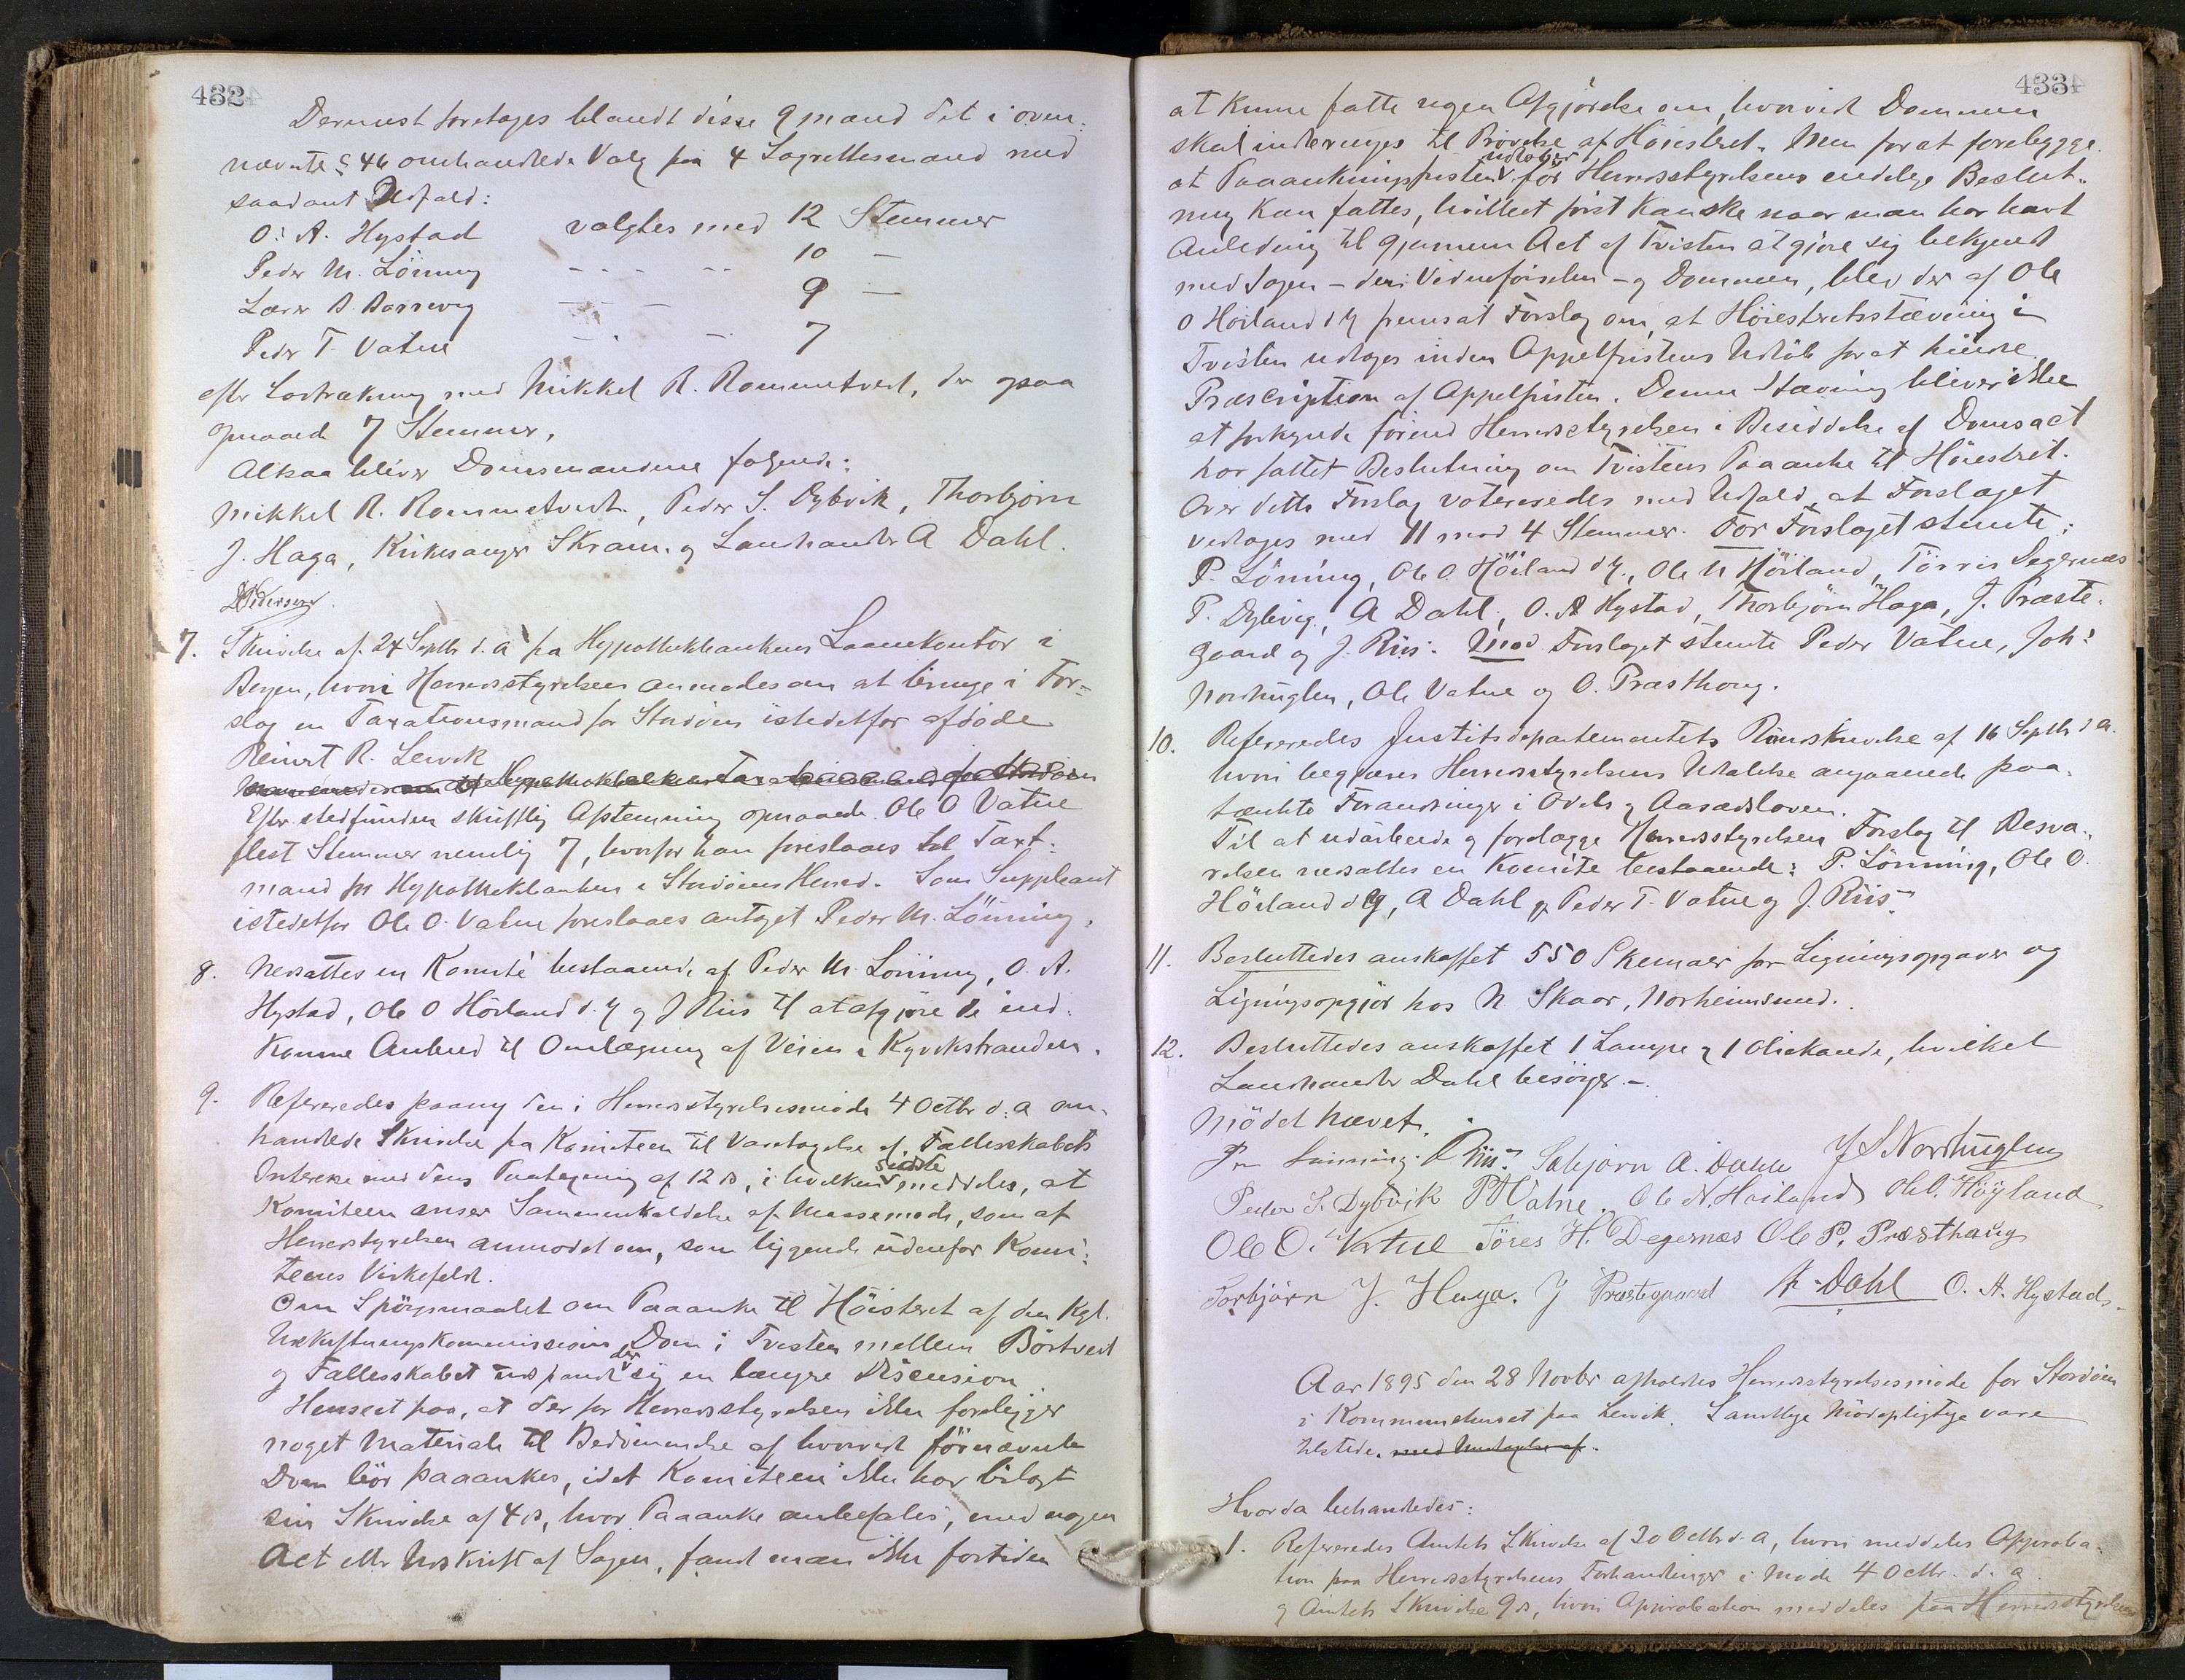 432
Dernæst foretages blandt disse 9 mænd det i oven-
nævnte § 46 omhandlede Valg paa 4 Lagrettesmænd med
saadant Udfald:
O. A. Hystad valgtes med 12 Stemmer
Peder M. Lönning - - - - - 10 -
Lærer B. - - - 9 -
Peder T. Vatne - - - 7
efter Lodtrækning med Mikkel R. Rommetvedt, der ogsaa
opnaaede 7 Stemmer.
Altsaa bliver Domsmændene følgende:
Mikkel R. Rommetvedt, Peder S. Dybvik, Thorbjörn
J. Haga, Kirkesanger Skram og Landhandler A Dahl.
7. Skrivelse af 24 Septb d. a fra Hypothekbankens Laanekontor i
Bergen, hvori Herredsstyrelsen anmodes om at bringe i For-
slag en Taxationsmand for Stordöen istedetfor afdöde
Reinert R. Lervik
Efter stedfunden skriftlig Afstemning opnaaede Ole O Vatne
flest Stemmer nemlig 7, hvorfor han foreslaaes til Taxt-
mand for Hypothekbanken i Stordöens Herred. Som Suppleant
istedetfor Ole O. Vatne foreslaaes antaget Peder M. Lönning.
8. Nedsattes en Komité bestaaende af Peder M Lönning, O. A.
Hystad, Ole O Höiland d. y og J Riis til at afgjöre de ind-
komne Anbud til Omlægning af Veien i Kyvikstranden.
9. Refereredes paany den i Herredsstyrelsesmöde 4 Octbr d. a om-
handlede Skrivelse fra Komiteen til Varetagelse af Fællesskabets
Interesse med dens Paategning af 12 ds, i hvilken sidste meddeles, at
Komiteen anser Sammenkaldelse af Massemöde, som af
Herredsstyrelsen anmodet om, som liggende udenfor Komi-
teens Virkefeldt.
Om Spörgsmaalet om Paaanke til Höisteret af den Kgl.
Udskiftningskommissions Dom i Tvisten mellem Börtvedt
og Fællesskabet udspandt der sig en længre Discusion
Henseet paa, at der for Herredsstyrelsen ikke foreligger
noget Materiale til Bedömmelse af hvorvidt förnævnte
Dom bör paaankes, idet Komiteen ikke har bilagt
sin Skrivelse af 4 ds, hvor Paaanke anbefales, med nogen
Act eller Udskrift af Sagen, fandt man ikke fortiden
433
at kunne fatte nogen Afgjörelse om, hvorvidt Dommen
skal inderinges til Prövelse af Höiesteret. Men for at forebygge
at Paaankningsfristen udlöber för Herredsstyrelsens endelige Beslut-
ning kan fattes, hvilket först kan ske naar man har havt
Anledning til gjennem Act af Tvisten at gjöre sig bekjendt
med Sagen - Vidneförselen - og Dommen, blev der af Ole
O Höiland d y fremsat Forslag om, at Höiesteretsstævning i
Tvisten udtages inden Appelfristens Udlöb for at hindre
Præscription af Appelfristen. Denne Stævning bliver ikke
at forkynde förend Herredsstyrelsen i Besiddelse af Domsact
har fattet Beslutning om Tvistens Paaanke til Höiesteret.
Over dette Forslag voteredes med Udfald, at Forslaget
vedtoges med 11 mod 4 Stemmer. For Forslaget stemte:
P. Lönning, Ole O. Höiland d y., Ole N Höiland, Törris Degernæs
P. Dybvig, A Dahl, O. A Hystad, Thorbjörn Haga, J. Præste-
gaard og J. Riis. Mod Forslaget stemte Peder Vatne, Joh:
Nordhuglen, Ole Vatne og O. Præsthoug.
10. Refereredes Justitsdepartementets Rundskrivelse af 16 Septb d a.
hvori begjæres Herredsstyrelsens Udtalelse angaaende paa-
tænkte Forandringer i Odels og Aasædesloven.
Til at udarbeide og forelægge Herredsstyrelsen Forslag til Besva-
relsen nedsattes en Komite bestaaende: P. Lönning, Ole O.
Höiland d y, A Dahl, Peder T. Vatne og J. Riis.
11. Besluttedes anskaffet 550 Skemaer for Ligningsopgaver og
Ligningsopgjör hos N Skaar, Norheimsund.
12. Besluttedes anskaffet 1 Lampe og 1 Oliekande, hvilket
Landhandler Dahl besörger.-
Mödet hævet.
P M Lönning. J Riis. Asbjørn A. Dahle J S Nordhuglen
Peder S. Dybvik P T Vatne. Ole N. Høiland Ole O. Höyland
Ole O. Vatne Töres H. Degernæs Ole P. Præsthaug
Torbjörn J. Haga. J Præstegaard A. Dahl O. A. Hystad.
Aar 1895 den 28 Novbr afholdtes Herredsstyrelsesmöde for Stordöen
i Kommunehuset paa Lervik. Samtlige Mödepligtige vare
tilstede. med Undtagelse af.
Hvorda behandledes:
1. Refereredes Amtets Skrivelse af 20 Octbr d. a, hvori meddeles Approba-
tion paa Herredsstyrelsens Forhandlinger i Möde 4 Octbr. d. a
og Amtets Skrivelse 9 ds, hvori Approbation meddeles paa Herredsstyrelsens